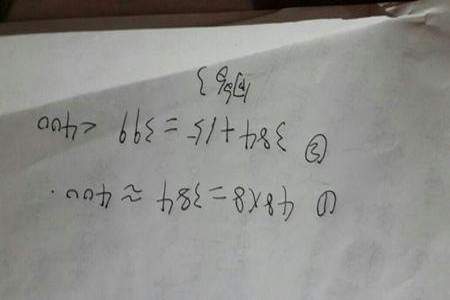 ① 48×8=384 ≈ 400.
② 384+15=399 <400